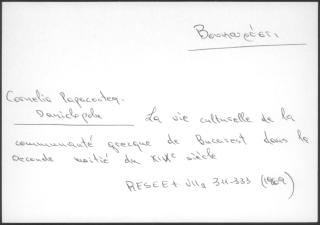 Cornelia Papacostea-
Danielopolu La vie culturelle de la
communauté grecque de Bucarest dans la
seconde moitié du XIXe siècle
RESEE t. VII2 311-333 (1969)